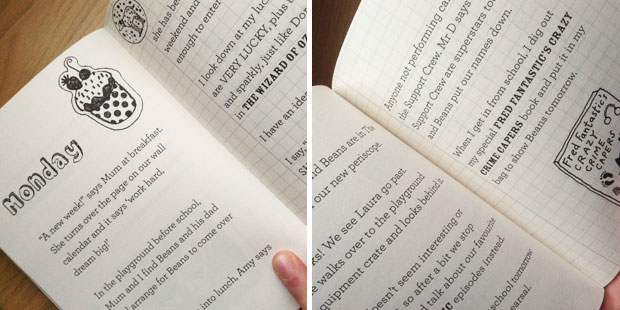 Monday
"A new week!" says Mum at breakfast.
She turns over the page on our wall
calendar and it says 'work hard,
dream big!'
In the playground before school,
Mum and I find Beans and his dad
arrange for Beans to come over
into lunch, Amy says
she has be
weekend and
enough to enter
I look down at my luc
are VERY LUCKY, plus
and sparkly, just like Do
in THE WIZARD OF OZ
I have an ide
I say, "
Anyone not performing ca
the Support Crew. Mr D says
Support Crew are superstars to
and Beans put our names down.
When I get in from school, I dig out
my special FRED FANTASTIC'S CRAZY
CRIME CAPERS book and put it in my
bag to show Beans tomorrow.
Fred Fantastic's
CRAZY
CRIME
CAPERS
d Beans are in. The
our new periscope.
ks! We see Laura go past.
e walks over to the playground
quipment crate and looks behind it.
doesn't seem interesting or
, so after a bit we stop
d talk about our favourite
IC episodes instead.
school tomorrow
hearsal.